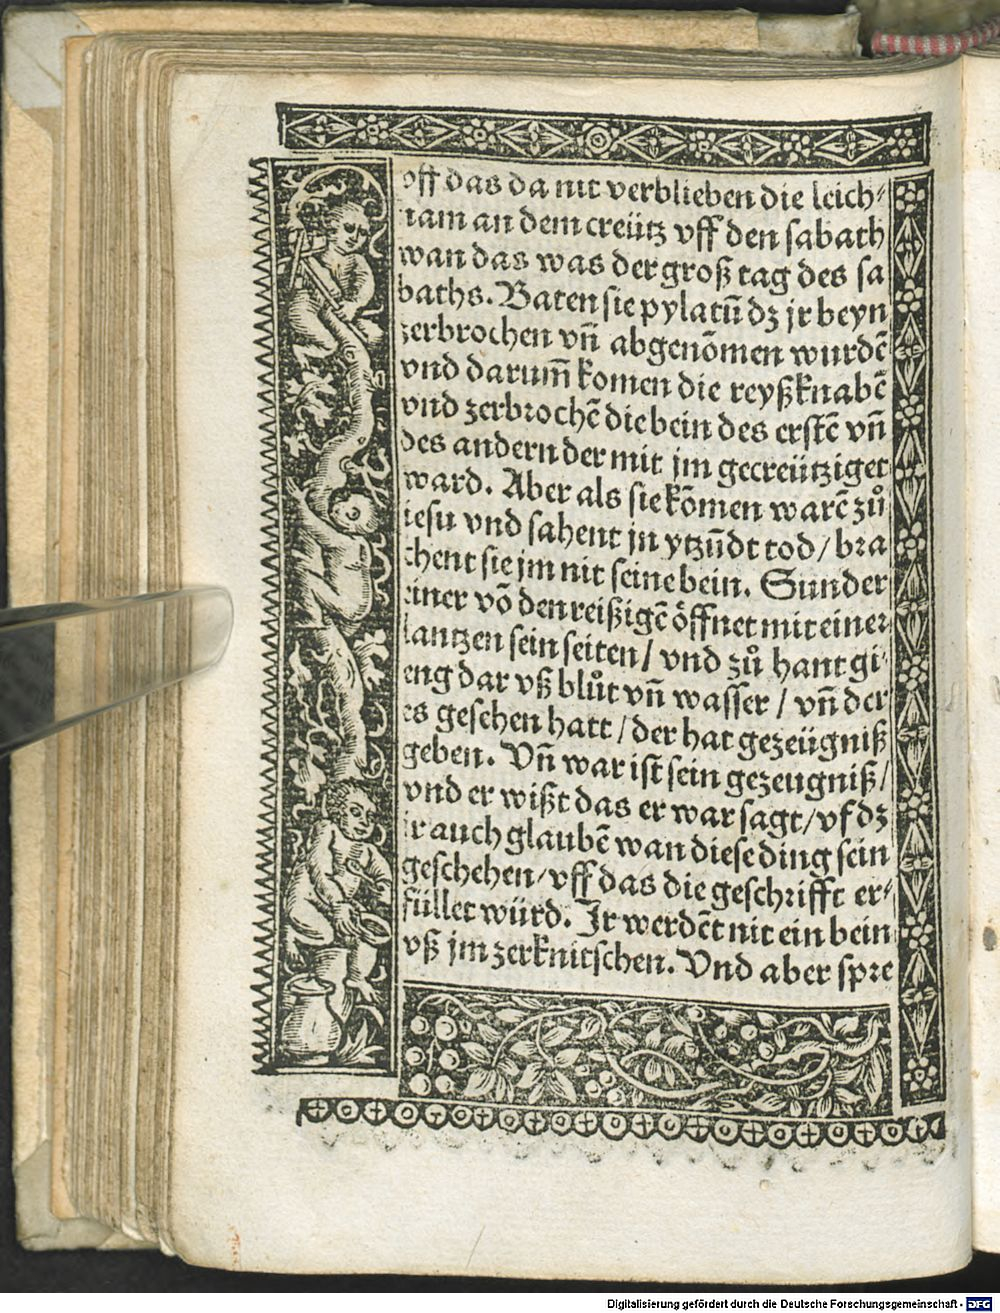 vff das da nit verblieben die leich⸗
nam an dem creütz vff den sabath
wan das was der groß tag des sa
baths. Baten sie pylatū dz jr beyn
zerbrochen vn̄ abgenōmen wurdē
vnd darum̄ komen die reyßknabē
vnd zerbrochē die bein des erstē vn̄
des andern der mit jm gecreütziget
ward. Aber als sie kōmen warē zuͦ
iesu vnd sahent jn ytzūdt tod / bra
chent sie jm nit seine bein. Sunder
einer vō den reißigē öffnet mit einer
lantzen sein seiten / vnd zuͦ hant gi⸗
eng dar vß bluͦt vn̄ wasser / vn̄ der
es gesehen hatt / der hat gezeügniß
geben. Vn̄ war ist sein gezeugniß /
vnd er wißt das er war sagt / vf dz
ir auch glaubē wan diese ding sein
geschehen / vff das die geschrifft er⸗
füllet würd. Jr werdēt nit ein bein
vß jm zerknitschen. Vnd aber spre
Digitalisierung gefördert durch die Deutsche Forschungsgemeinschaft - DFG